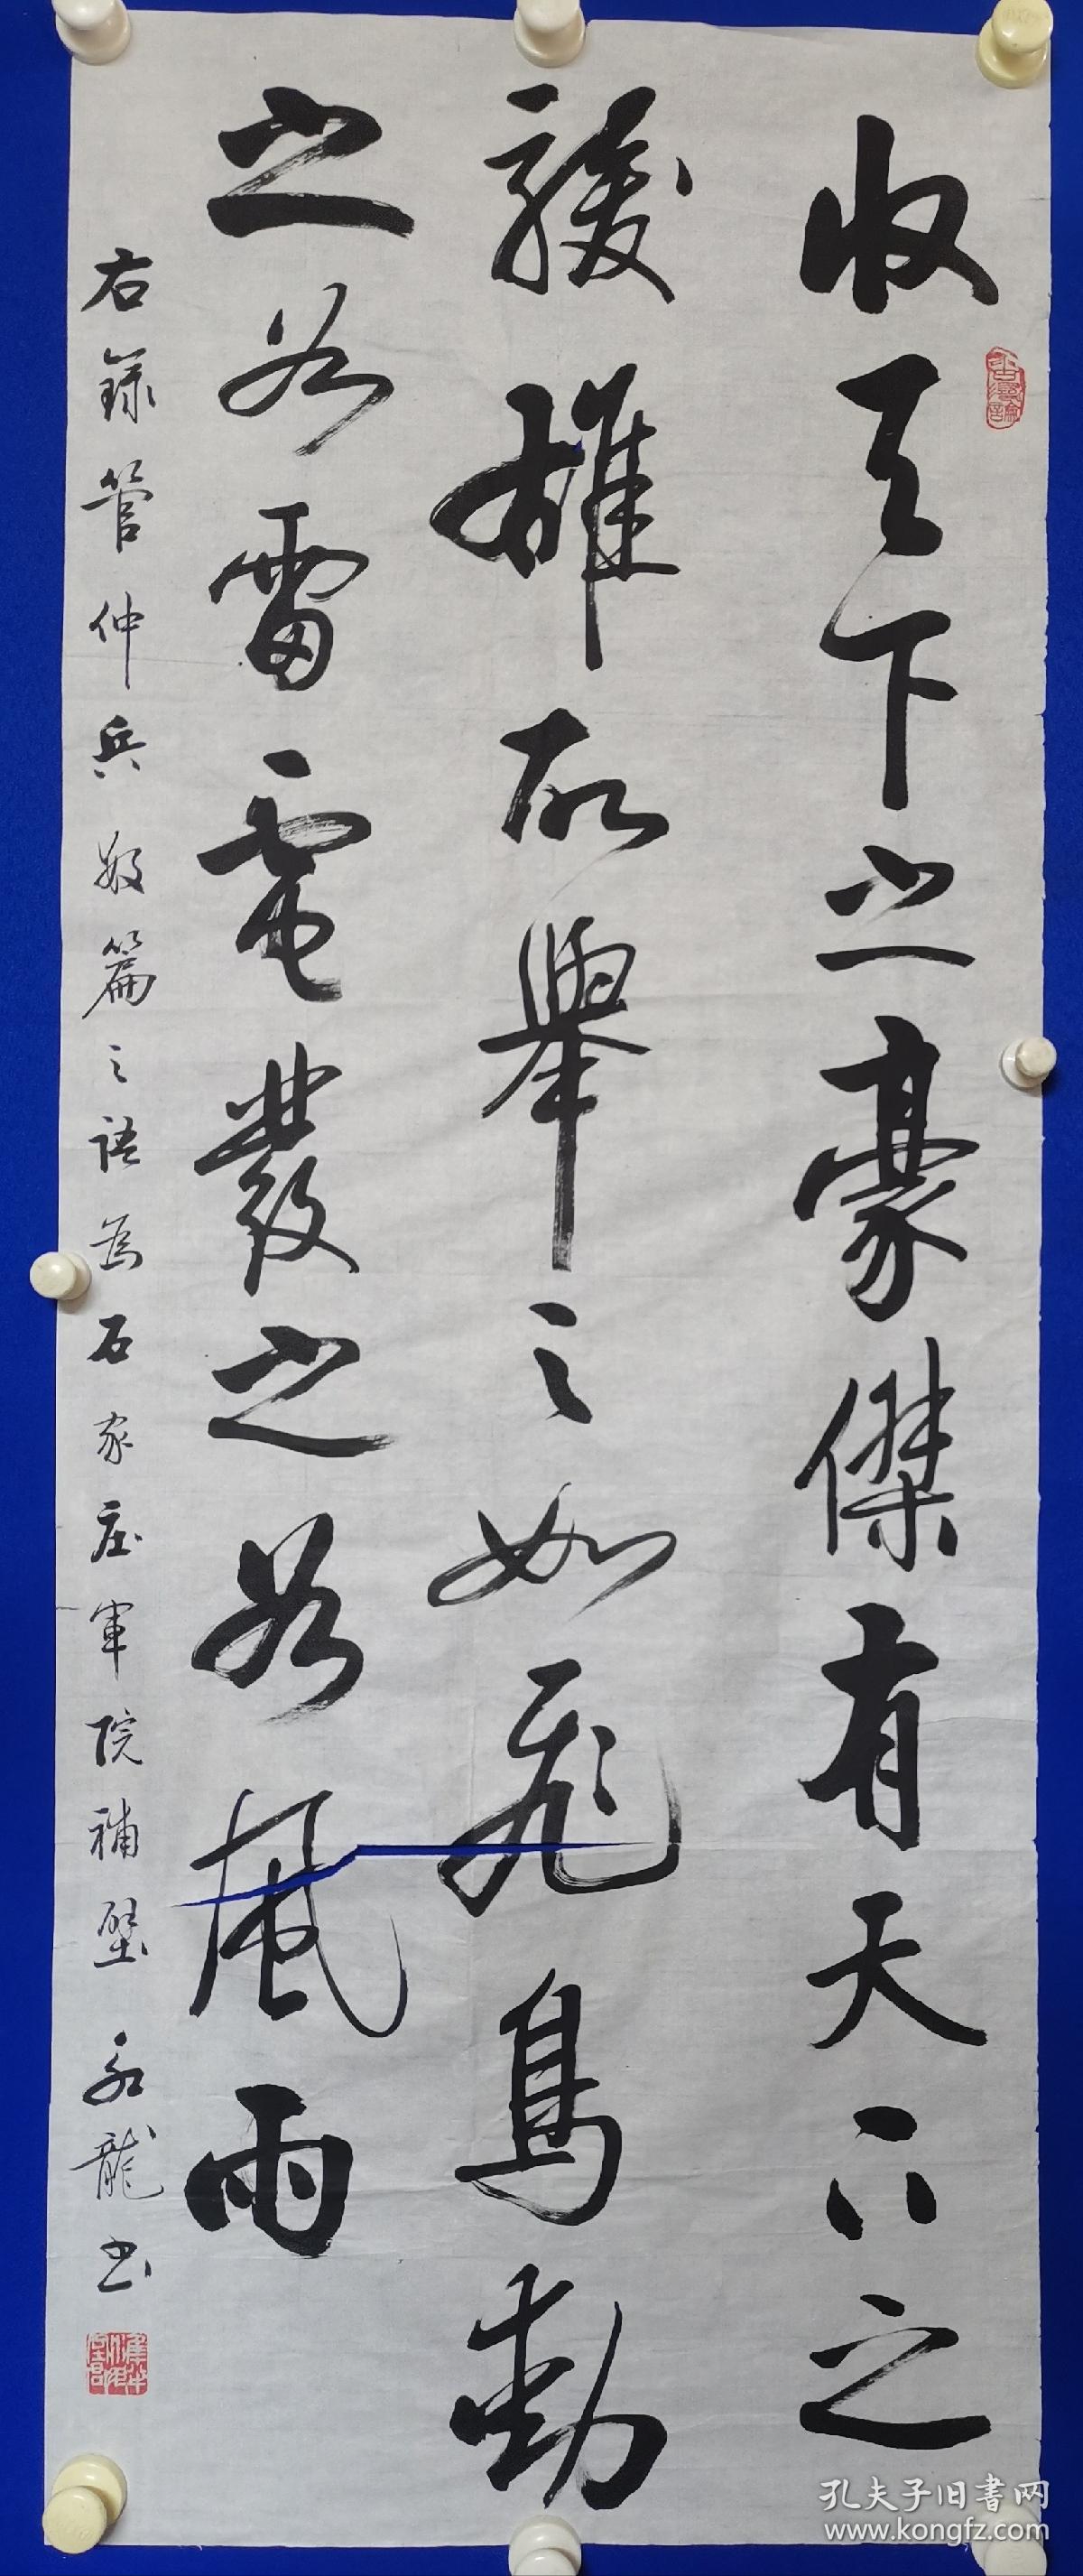 收天下之豪傑有天下之
駿雄故舉之如飛鳥動
之若雷電發之若風雨
右録管仲兵法篇之語為石家庄軍院補壁 永龍书
孔夫子旧书网
www.kongfz.com